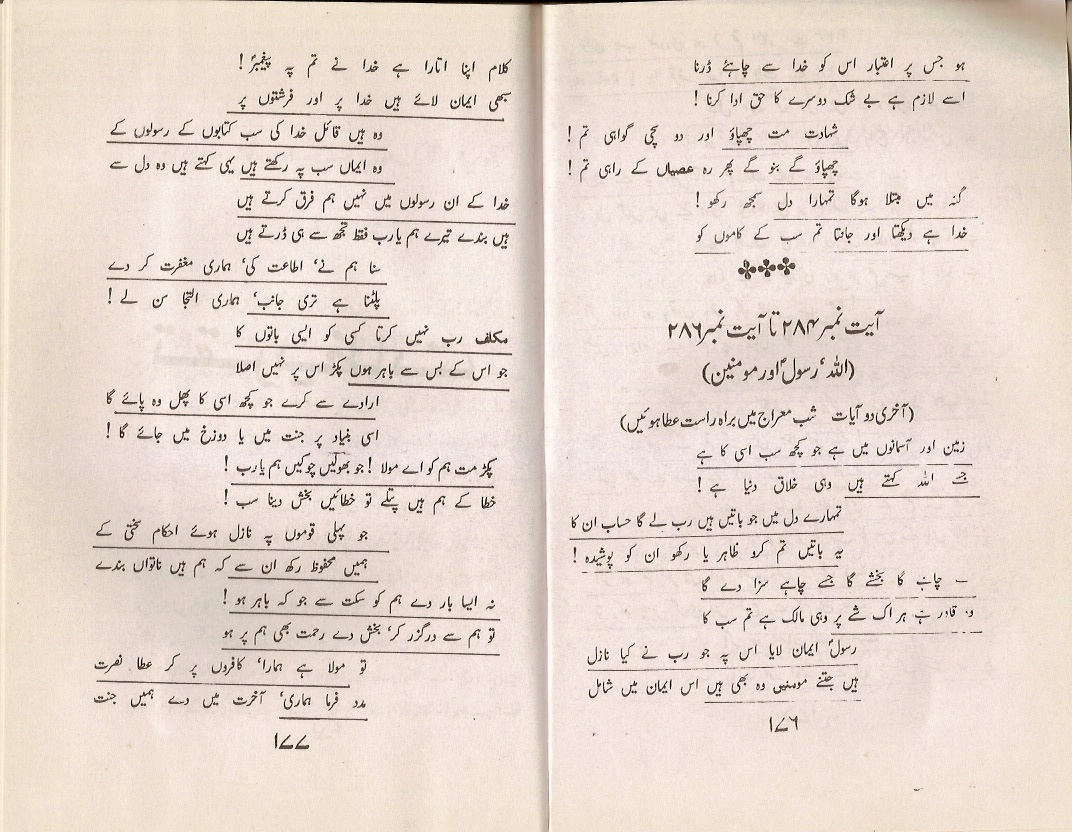 ہو جس پر اعتبار اس کو خدا سے چاہئے ڈرنا
اسے لازم ہے بے شک دوسرے کا حق ادا کرنا !
شہادت مت چھپاؤ اور دو سچی گواہی تم !
چھپاؤ گے بنو گے پھر رہ عصیاں کے راہی تم !
گنہ میں مبتلا ہوگا تمہارا دل سمجھ رکھو !
خدا ہے دیکھتا اور جانتا تم سب کے کاموں کو
آیت نمبر ۲۸۴ تا آیت نمبر ۲۸۶
(اللہ ‘ رسولؐ اور مومنین)
(آخری دو آیات شب معراج میں براہ راست عطا ہوئیں)
زمین اور آسمانوں میں ہے جو کچھ سب اسی کا ہے
جسے اللہ کہتے ہیں وہی خلاق دنیا ہے !
تمہارے دل میں جو باتیں ہیں رب لے گا حساب ان کا
یہ باتیں تم کرو ظاہر یا رکھو ان کو پوشیدہ !
چاہے گا بخشے گا جسے چاہے سزا دے گا
قادر ہے ہر اک شے پر وہی مالک ہے تم سب کا
رسولؐ ایمان لایا اس پہ جو رب نے کیا نازل
ہیں جتنے مومنیں وہ بھی ہیں اس ایمان میں شامل
۱۷۶
کلام اپنا اتارا ہے خدا نے تم پہ پیغمبرؐ !
سبھی ایمان لائے ہیں خدا پر اور فرشتوں پر
وہ ہیں قائل خدا کی سب کتابوں کے رسولوں کے
وہ ایماں سب پہ رکھتے ہیں یہی کہتے ہیں وہ دل سے
خدا کے ان رسولوں میں نہیں ہم فرق کرتے ہیں
ہیں بندے تیرے ہم یا رب فقط تجھ سے ہی ڈرتے ہیں
سنا ہم نے ‘ اطاعت کی ‘ ہماری مغفرت کر دے
پلٹنا ہے تری جانب ‘ ہماری التجا سن لے !
مکلف رب نہیں کرتا کسی کو ایسی باتوں کا
جو اس کے بس سے باہر ہوں پکڑ اس پر نہیں اصلا
ارادے سے کرے جو کچھ اسی کا پھل وہ پائے گا
اسی بنیاد پر جنت میں یا دوزخ میں جائے گا !
پکڑ مت ہم کو اے مولا ! جو بھولیں چوکیں ہم یا رب !
خطا کے ہم ہیں پتلے تو خطائیں بخش دینا سب !
جو پہلی قوموں پہ نازل ہوئے احکام سختی کے
ہمیں محفوظ رکھ ان سے کہ ہم ہیں ناتواں بندے
نہ ایسا بار دے ہم کو سکت سے جو کہ باہر ہو !
تو ہم سے درگزر کر ‘ بخش دے رحمت بھی ہم پر ہو
تو مولا ہے ہمارا ‘ کافروں پر کر عطا نصرت
مدد فرما ہماری ‘ آخرت میں دے ہمیں جنت
۱۷۷